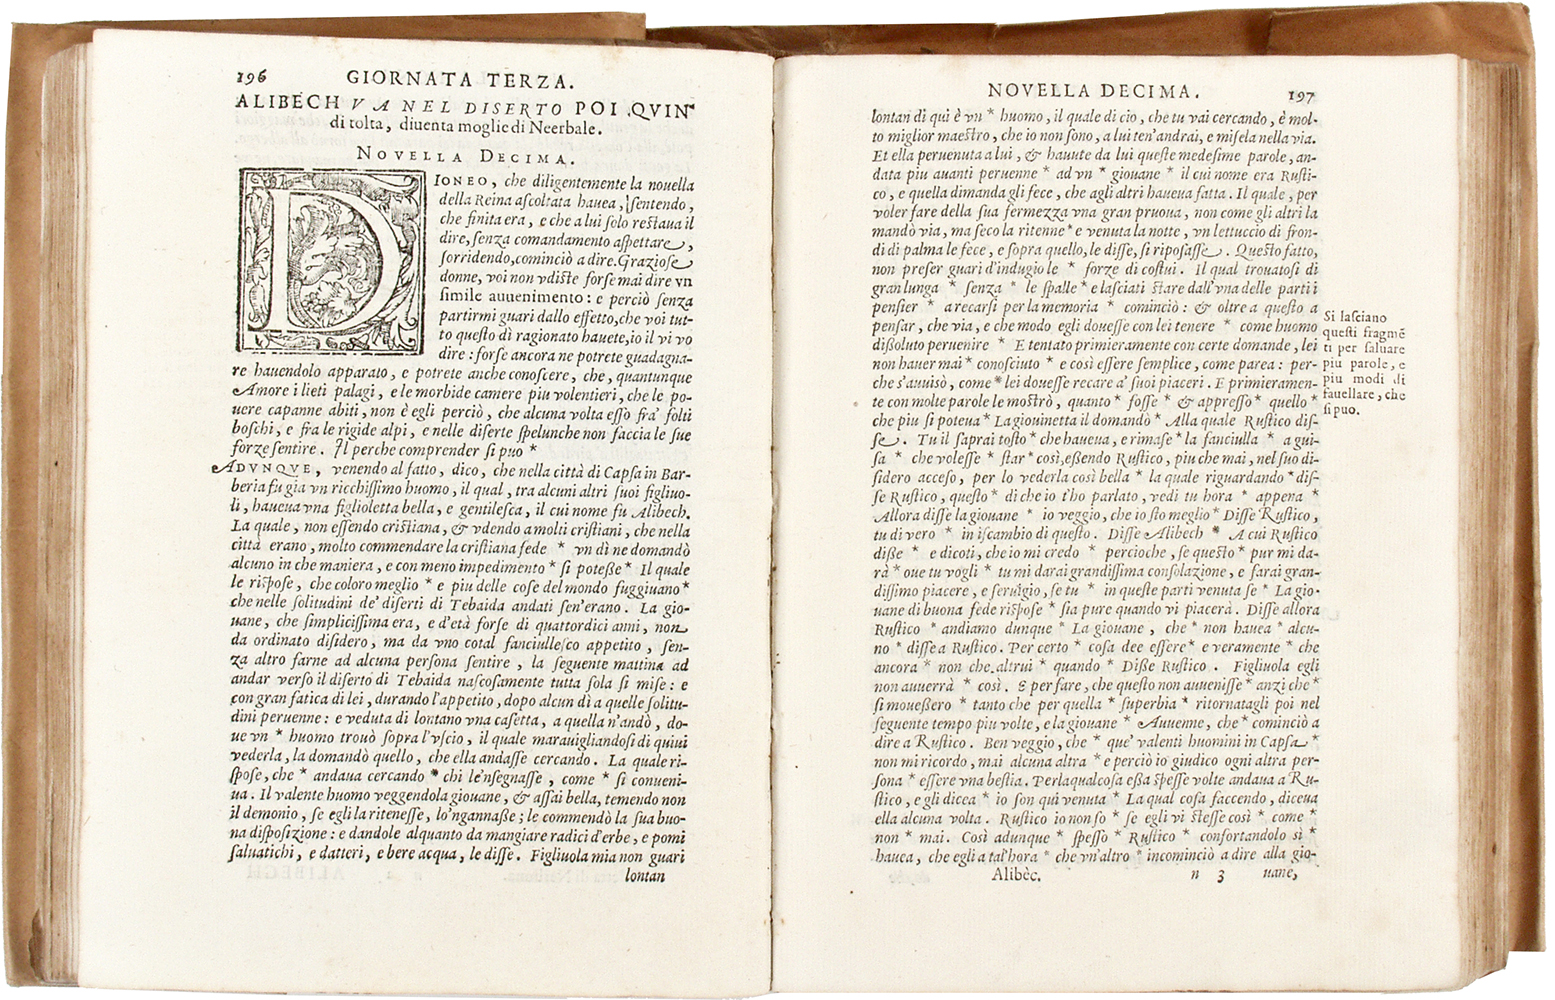 196 GIORNATA TERZA.
ALIBECH VA NEL DISERTO POI QVIN
di tolta, diuenta moglie di Neerbale.
NOVELLA DECIMA.
DIONEO, che diligentemente la nouella
della Reina aſcoltata hauea, ſentendo,
che finita era, e che a lui ſolo reſtaua il
dire, ſenza comandamento aſpettare,
ſorridendo, cominciò a dire. Grazioſe
donne, voi non vdiſte forſe mai dire vn
ſimile auuenimento: e perciò ſenza
partirmi guari dallo effetto, che voi tut-
to queſto dì ragionato hauete, io il vi vo
dire: forſe ancora ne potrete guadagna-
re hauendolo apparato, e potrete anche conoſcere, che, quantunque
Amore i lieti palagi, e le morbide camere piu volentieri, che le po-
uere capanne abiti, non è egli perciò, che alcuna volta eſſo fra' folti
boſchi, e fra le rigide alpi, e nelle diſerte ſpelunche non faccia le ſue
forze ſentire. Il perche comprender ſi puo *
ADVNQVE, venendo al fatto, dico, che nella città di Capſa in Bar-
beria fu gia vn ricchiſſimo huomo, il qual, tra alcuni altri ſuoi figliuo-
li, haueua vna figlioletta bella, e gentileſca, il cui nome fu Alibech.
La quale, non eſſendo criſtiana, & vdendo a molti criſtiani, che nella
città erano, molto commendare la criſtiana fede * vn dì ne domandò
alcuno in che maniera, e con meno impedimento * ſi poteße * Il quale
le riſpoſe, che coloro meglio * e piu delle coſe del mondo fuggiuano *
che nelle ſolitudini de' diſerti di Tebaida andati ſen'erano. La gio-
uane, che ſimpliciſſima era, e d'età forſe di quattordici anni, non
da ordinato diſidero, ma da vno cotal fanciulleſco appetito, ſen-
za altro farne ad alcuna perſona ſentire, la ſeguente mattina ad
andar verſo il diſerto di Tebaida naſcoſamente tutta ſola ſi miſe: e
con gran fatica di lei, durando l'appetito, dopo alcun dì a quelle ſolitu-
dini peruenne: e veduta di lontano vna caſetta, a quella n'andò, do-
ue vn * huomo trouò ſopra l'vſcio, il quale marauigliandoſi di quiui
vederla, la domandò quello, che ella andaſſe cercando. La quale ri-
ſpoſe, che * andaua cercando * chi le'nſegnaſſe, come * ſi conueni-
ua. Il valente huomo veggendola giouane, & aſſai bella, temendo non
il demonio, ſe egli la riteneſſe, lo'ngannaße; le commendò la ſua buo-
na diſpoſizione: e dandole alquanto da mangiare radici d'erbe, e pomi
ſaluatichi, e datteri, e bere acqua, le diſſe. Figliuola mia non guari
lontan
NOVELLA DECIMA. 197
lontan di qui è vn * huomo, il quale di cio, che tu vai cercando, è mol-
to miglior maeſtro, che io non ſono, a lui ten'andrai, e miſela nella via.
Et ella peruenuta a lui, & hauute da lui queſte medeſime parole, an-
data piu auanti peruenne * ad vn * giouane * il cui nome era Ruſti-
co, e quella dimanda gli fece, che agli altri haueua fatta. Il quale, per
voler fare della ſua fermezza vna gran pruoua, non come gli altri la
mandò via, ma ſeco la ritenne * e venuta la notte, vn lettuccio di fron-
di di palma le fece, e ſopra quello, le diſſe, ſi ripoſaſſe. Queſto fatto,
non preſer guari d'indugio le * forze di coſtui. Il qual trouatoſi di
gran lunga * ſenza * le ſpalle * e laſciati ſtare dall'vna delle parti i
penſier * a recarſi per la memoria * cominciò: & oltre a queſto a
penſar, che via, e che modo egli doueſſe con lei tenere * come huomo
dißoluto peruenire * E tentato primieramente con certe domande, lei
non hauer mai * conoſciuto * e così eſſere ſemplice, come parea: per-
che s'auuisò, come * lei doueſſe recare a' ſuoi piaceri. E primieramen-
te con molte parole le moſtrò, quanto * foſſe * & appreſſo * quello *
che piu ſi poteua * La giouinetta il domandò * Alla quale Ruſtico diſ-
ſe. Tu il ſaprai toſto * che haueua, e rimaſe * la fanciulla * a gui-
ſa * che voleſſe * ſtar * così, eßendo Ruſtico, piu che mai, nel ſuo di-
ſidero acceſo, per lo vederla così bella * la quale riguardando * diſ-
ſe Ruſtico, queſto * di che io t'ho parlato, vedi tu hora * appena *
Allora diſſe la giouane * io veggio, che io ſto meglio * Diſſe Ruſtico,
tu di vero * in iſcambio di queſto. Diſſe Alibech * A cui Ruſtico
diße * e dicoti, che io mi credo * percioche, ſe queſto * pur mi da-
rà * oue tu vogli * tu mi darai grandiſſima conſolazione, e farai gran-
diſſimo piacere, e ſeruigio, ſe tu * in queſte parti venuta ſe * La gio-
uane di buona fede riſpoſe * ſia pure quando vi piacerà. Diſſe allora
Ruſtico * andiamo dunque * La giouane, che * non hauea * alcu-
no * diſſe a Ruſtico. Per certo * coſa dee eſſere * e veramente * che
ancora * non che altrui * quando * Diße Ruſtico. Figliuola egli
non auuerrà * così. E per fare, che queſto non auueniſſe * anzi che *
ſi moueßero * tanto che per quella * ſuperbia * ritornatagli poi nel
ſeguente tempo piu volte, e la giouane * Auuenne, che * cominciò a
dire a Ruſtico. Ben veggio, che * que' valenti huomini in Capſa *
non mi ricordo, mai alcuna altra * e perciò io giudico ogni altra per-
ſona * eſſere vna beſtia. Perlaqualcoſa eßa ſpeſſe volte andaua a Ru-
ſtico, e gli dicea * io ſon qui venuta * La qual coſa faccendo, diceua
ella alcuna volta. Ruſtico io non ſo * ſe egli vi ſteſſe così * come *
non * mai. Così adunque * ſpeſſo * Ruſtico * confortandolo sì *
hauea, che egli a tal'hora * che vn'altro * incominciò a dire alla gio-
Alibèc. n 3 uane,
Si laſciano
queſti fragmē
ti per ſaluare
piu parole, e
piu modi di
fauellare, che
ſi puo.